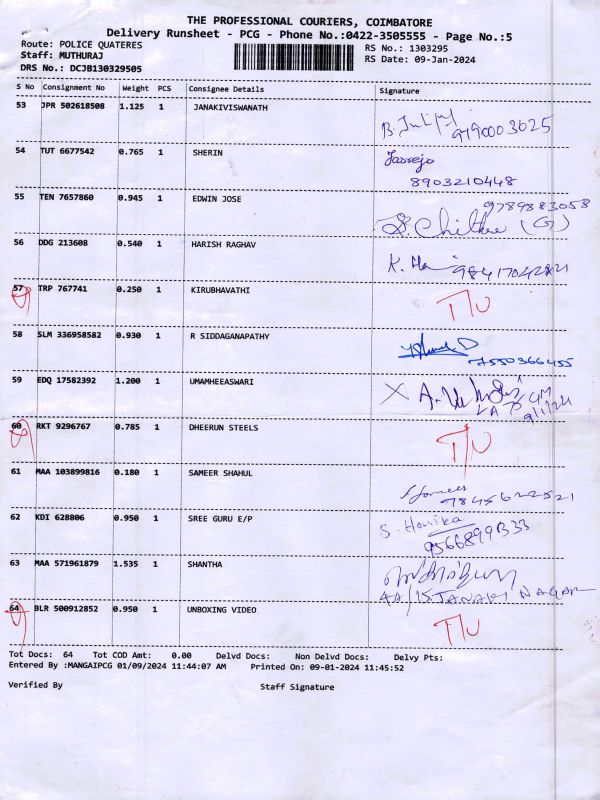 THE PROFESSIONAL COURIERS, COIMBATORE
Delivery Runsheet - PCG - Phone No.:0422-3505555 - Page No.:5
Route: POLICE QUATERES RS No.: 1303295
Staff: MUTHURAJ RS Date: 09-Jan-2024
DRS No.: DCJB130329505
S No Consignment No Weight PCS Consignee Details Signature
53 JPR 502618508 1.125 1 JANAKIVISWANATH
9190003625
54 TUT 6677542 0.765 1 SHERIN
8903210448
55 TEN 7657860 0.945 1 EDWIN JOSE 9789883058
(G)
56 DDG 213608 0.540 1 HARISH RAGHAV
K. Ha
57 TRP 767741 0.250 1 KIRUBHAVATHI T/U
58 SLM 336958582 0.930 1 R SIDDAGANAPATHY
7550366455
59 EDQ 17582392 1.200 1 UMAMHEEASWARI
9/1/24
60 RKT 9296767 0.785 1 DHEERUN STEELS T/U
61 MAA 103899816 0.180 1 SAMEER SHAHUL
7845622521
62 KDI 628806 0.950 1 SREE GURU E/P
S. Harika
9566899333
63 MAA 571961879 1.535 1 SHANTHA
4A/15 JANAKI NAGAR
64 BLR 500912852 0.950 1 UNBOXING VIDEO T/U
Tot Docs: 64 Tot COD Amt: 0.00 Delvd Docs: Non Delvd Docs: Delvy Pts:
Entered By :MANGAIPCG 01/09/2024 11:44:07 AM Printed On: 09-01-2024 11:45:52
Verified By Staff Signature